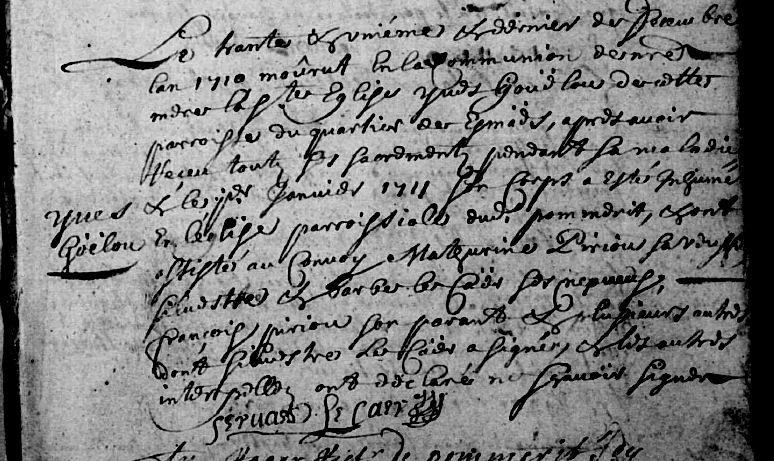 Le trante & uniéme & dernier de Decembre
lan 1710 moûrut En la Communion de nre
mere la Ste Eglise yves Goüelou de cette
parroisse du quartier des, apres avoir
receu touts ses sacrements pendant sa maladie
yves & le pr Janvier 1711 son Corps a esté Inhumé
Goëlou En léglise parroissiale dud pommerit, & ont
assistés au Convoy Mathurine Piriou sa veusve
silvestre & barbe le Caër ses nepveus,
françois piriou son parant & plusieurs autres
dont silvestre Le Caër a signé, & les autres
interpellez ont déclaré ne sçavoir signer
servast Le Caer
de pommerit